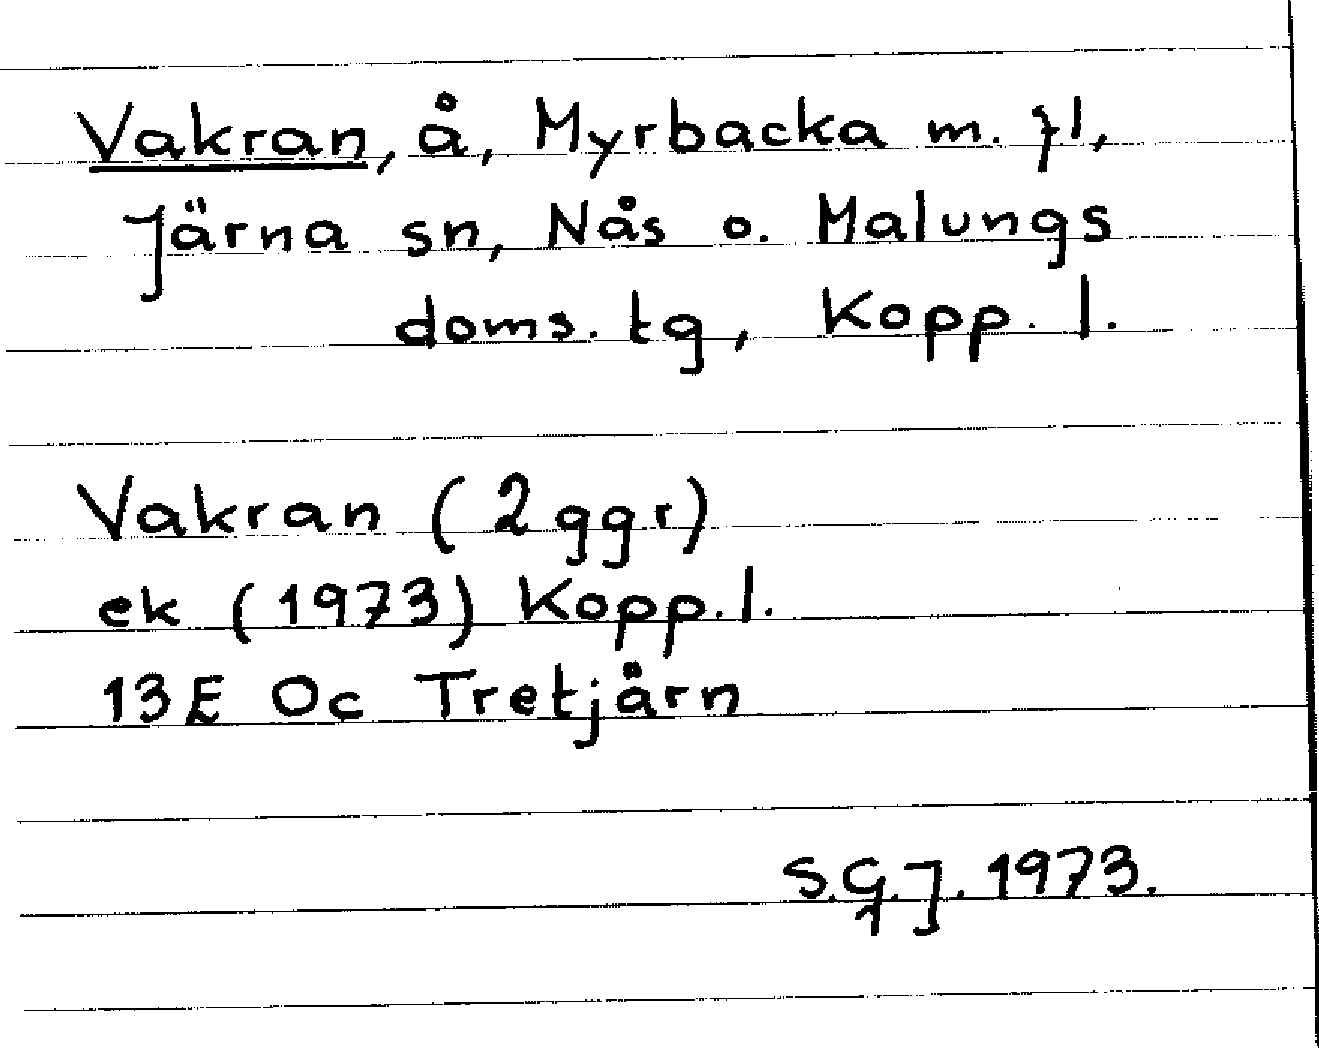 Vakran, å, Myrbacka m. fl,
Järna sn, Nås o. Malungs
doms. tg, Kopp. l.
Vakran (2 ggr)
ek (1973) Kopp. l.
13E Oc Tretjärn
S.G.J. 1973.